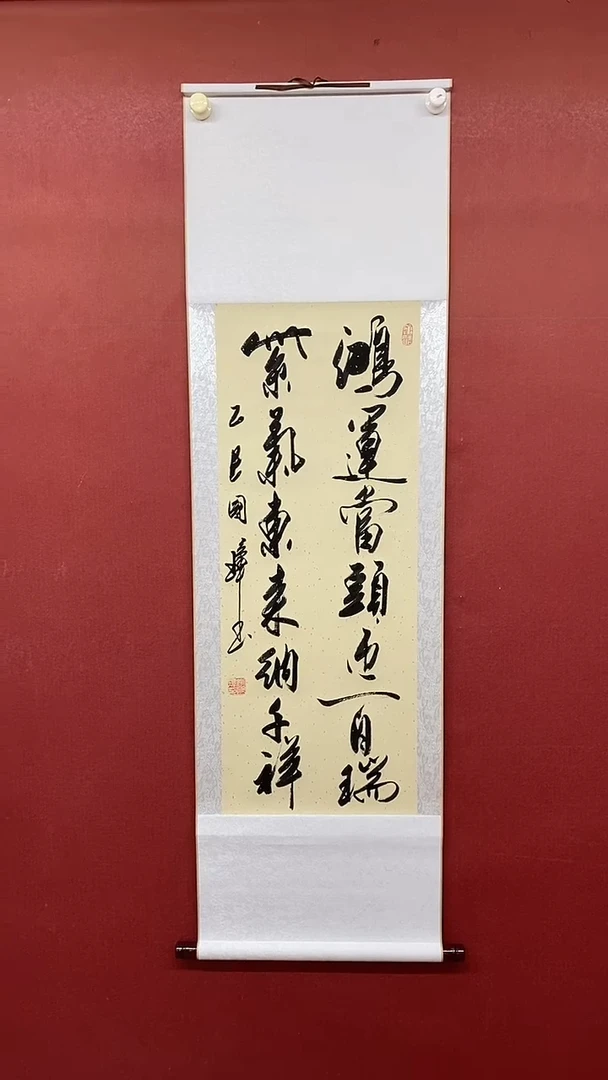 鴻運當頭迎百瑞
紫氣東來納千祥
乙巳國華書